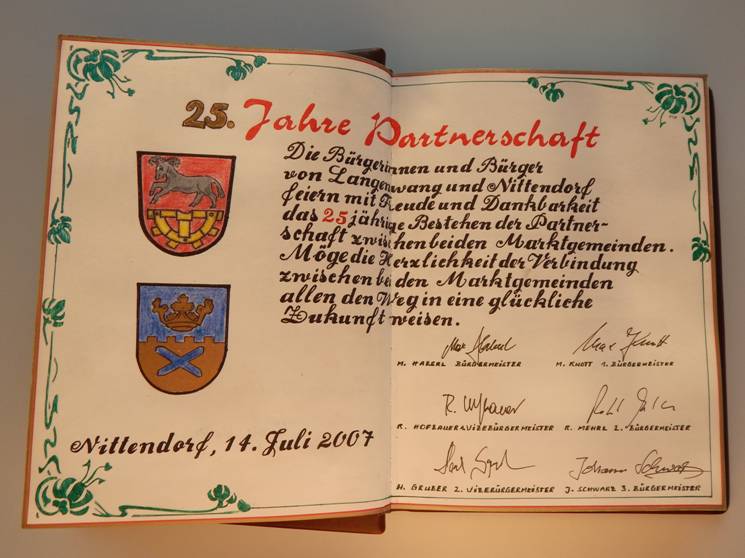 25. Jahre Partnerschaft
Die Bürgerinnen und Bürger
von Langenwang und Nittendorf
feiern mit Freude und Dankbarkeit
das 25 jährige Bestehen der Partner-
schaft zwischen beiden Marktgemeinden.
Möge die Herzlichkeit der Verbindung
zwischen beiden Marktgemeinden
allen den Weg in eine glückliche
Zukunft weisen.
M. HABERL BÜRGERMEISTER
M. KNOTT 1. BÜRGERMEISTER
R. HOFBAUER VIZEBÜRGERMEISTER
R. MEHRL 2. BÜRGERMEISTER
Nittendorf, 14. Juli 2007
H. GRUBER 2. VIZEBÜRGERMEISTER
J. SCHWARZ 3. BÜRGERMEISTER